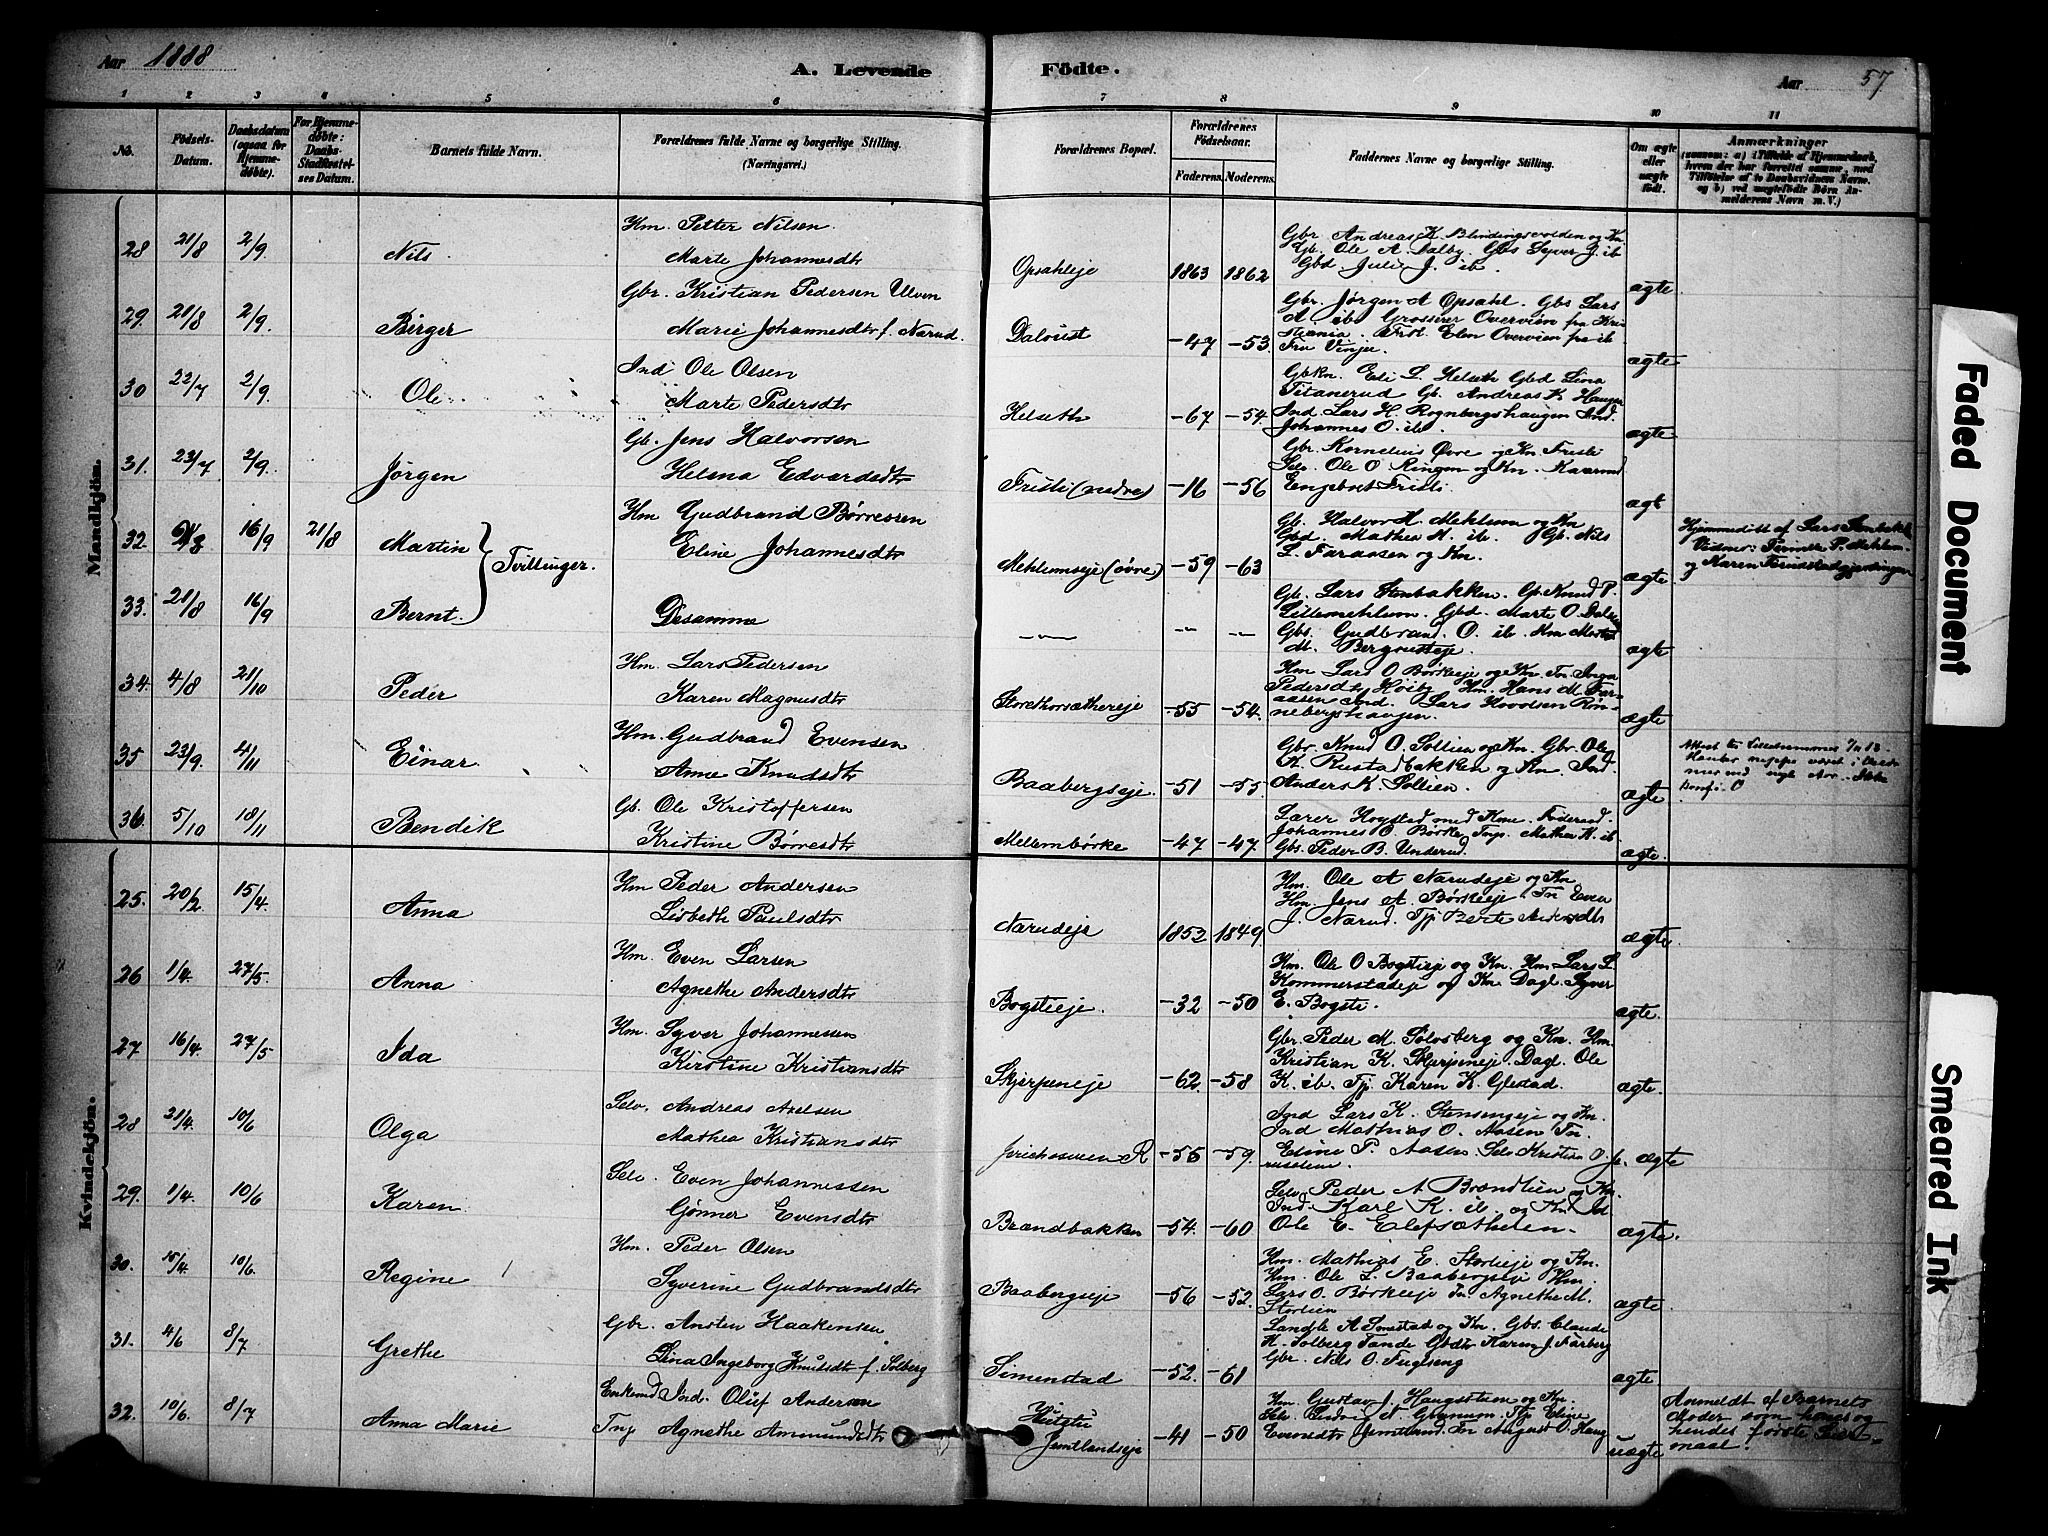 Aar 1888
A. Levende Födte.
Aar 57
1 2 3 4 5 6 7 8 9 10 11
No.
Födsels-Datum.
Daabsdatum (ogsaa for Hjemmedøbte).
For Hjemmedøbte: Daabs-Stadfæstelses Datum.
Barnets fulde Navn.
Forældrenes fulde Navne og borgerlige Stilling. (Næringsvei.)
Forældrenes Bopæl.
Forældrenes Födselsaar.
Faderens. Moderens.
Faddernes Navne og borgerlige Stilling.
Om ægte eller uægte født.
Anmærkninger
(saasom: a) i Tilfælde af Hjemmedaab, hvem der har forrettet samme, med Tilföielse af to Daabsvidners Navne, og b) ved uægtefödte Börn Anmelderens Navn m. V.)
Mandkjön.
28 21/8 2/9 Nils
Hm. Petter Nilsen
Marte Johannesdtr
Opsahleje 1863 1862
Gbr Andreas K. Blindingsvolden og Kn
Gb. Ole A. Dalby. Gbs Syver J. ib
Gbd Julie J. ib.
ægte
29. 21/8 2/9 Birger
Gbr. Kristian Pedersen Ulven
Marie Johannesdtr f. Narud.
-47 -53
Gbr. Jørgen A Opsahl. Gbs Lars
A ib. Grosserer Overvien fra Kri
stiania. Frk. Elen Overvien fra ib
Fru Vinje.
ægte
30 22/7 2/9 Ole
Ind Ole Olsen
Marte Pedersdtr
Helseth -67 -54
Gbkn. Eli L. Helseth Gbd Lina
Titanerud Gb. Andreas K Haugen
Ind Lars H. Rognbergshaugen Ind.
Johannes O. ib.
ægte
31. 23/7 2/9 Jørgen
Gb. Jens Halvorsen
Helena Edvardsdtr
Fristi (nedre) -16 -56
Gbr. Kornelius Øvre og Kn Fristi
Selv. Ole O. Ringen og Kn.
Engebret Fristi.
ægt
32. 16/9 21/8 Martin } Tvillinger.
Hm Gudbrand Børresen
Eline Johannesdtr
Mehlumseje (øvre) -59 -63
Gb. Halvor H. Mehlum og Kn
Gbd. Mathea H. ib. Gb. Nils
L. Faraasen og Kn.
ægte
Hjemmedøbt af Lars Stenbakk
og Karen
33. 21/8 16/9 Bernt.
Desamme
— — —
Gb. Lars Stenbakken. Gb Knud P.
Lillemehlum. Gbd. Marte O.
Gbs. Gudbrand. O. ib. Km
M. Bergrusteje.
ægte
34. 4/8 21/10 Peder
Hm. Lars Pedersen
Karen Magnusdtr
Storethorsæthereje -55 -54.
Hm Lars O Børkeeje og Kn. Tn. Inga
Pedersdtr Høiby Hm. Hans M. Far
aasen Ind. Lars Røn
nebergshaugen.
ægte
35 23/9. 4/11 Einar
Hm. Gudbrand Evensen
Anne Knudsdtr
Baabergseje. -51 -55
Gbr. Knud O. Sollien og Kn. Gbr. Ole
K. Rustadbakken og Kn. Ind
Anders K. Sollien.
ægte
36. 5/10 18/11 Bendik
Gb. Ole Kristoffersen
Kristine Børresdtr
Mellembörke -47 -47
Lærer Hogstad med Kone. Föderaad.
Johannes O. Börke Tnp. Mathea H. ib
Gbs. Peder B. Underud.
ægte.
Kvindekjön.
25. 20/2 15/4 Anna
Hm Peder Andersen
Lisbeth Paulsdtr
Narudeje 1852 1849
Hm. Ole A Narudeje og Kn
Hm. Jens A. Børkeeje Tn Even
J. Narud. Tj Berte Andersdtr
ægte
26 1/4 27/5 Anna
Hm. Even Larsen
Agnethe Andersdtr
Bogstieje. -32 -50
Hm. Ole O Bogstieje og Kn. Hm Lars L.
Kommerstadeje og Kn Dagl. Syver
E. Bogsti.
ægte.
27 16/4 27/5 Ida
Hm. Syver Johannessen
Kirstine Kristiansdtr
Skjerpeneje -62 -58
Gbr. Peder M. Solosberg og Kn. Hm.
Kristian K. Skjerpeneje Dagl. Ole
K. ib. Tj Karen K. Glestad.
ægte.
28 31/4. 10/6 Olga
Selv. Andreas Axelsen
Mathea Kristiansdtr
R -55 -59
Ind Lars K. Stensengeje og Kn.
Ind Mathias O. Aasen Tn.
Eline P. Aasen. Selv Kristian O.
ægte
29. 1/4 10/6 Karen
Selv. Even Johannessen
Gønner Evensdtr
Brændbakken -54. -60
Selv Peder A Brændlien og Kn.
Ind. Karl K. ib. og Kn Id
Ole E. Elefsætheien.
ægte.
30. 15/4 10/6. Regine
Hm. Peder Olsen
Syverine Gudbrandsdtr
Baabergseje -56 -52
Hm. Mathias E. Storlieje og Kn.
Hm. Ole L. Baabergseje Hm.
Lars O. Børkeeje Tn Agnethe M.
Storlien
ægte
31. 4/6 8/7 Grethe
Gbr. Ansten Haakensen
Lina Ingeborg Knudsdtr f. Solberg
Simenstad -52. -61
A Simestad og Kn. Gbs. Claude
K. Solberg Tande Gbdtr Karen J. Farberg
Gbr. Nils O. Fuglseng
ægte
32. 10/6. 8/7 Anna Marie
Enkemd Ind. Oluf Andersen
Tnp Agnethe Ammundsdtr
Jemtlandseje -41 -50
Hm. Gustav J. Haugstuen og Kn.
Selv. Ludvig N. Grønum. Tj Eline
Evensdtr Jemtland. Tn August O. Haug
uægte
Anmeldt af Barnets
Moder som hans og
hendes første Leier-
maal.
Faded Document
Smeared Ink